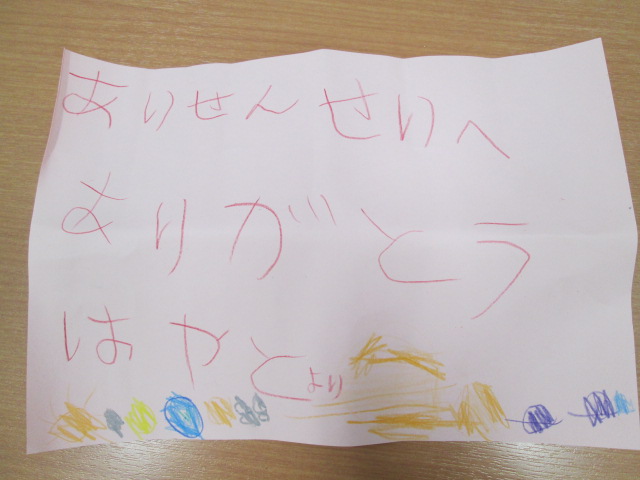 あいせんせいへ
ありがとう
はやとより